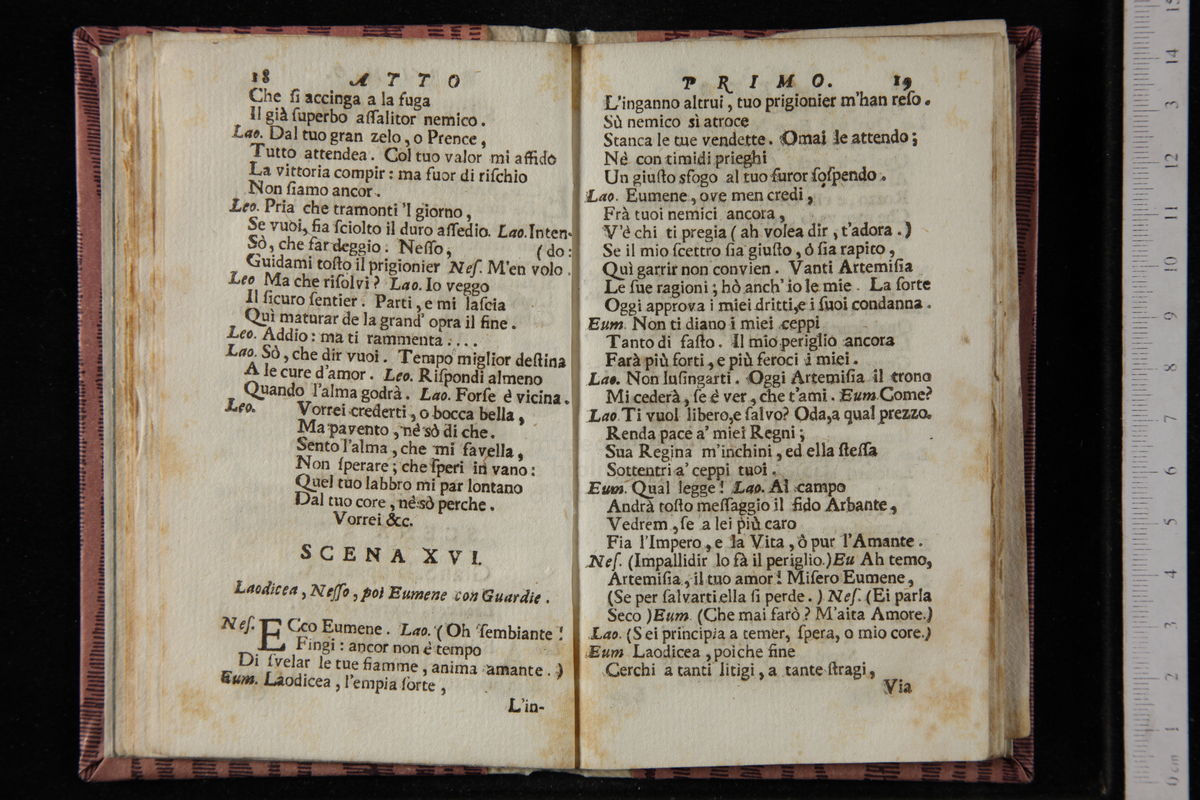 18 ATTO
Che ſi accinga a la fuga
Il già ſuperbo aſſalitor nemico.
Lao. Dal tuo gran zelo, o Prence,
Tutto attendea. Col tuo valor mi affido
La vittoria compir: ma fuor di riſchio
Non ſiamo ancor.
Leo. Pria che tramonti 'l giorno,
Se vuoi, fia ſciolto il duro aſſedio. Lao. Inten-
Sò, che far deggio. Neſſo, (do:
Guidami toſto il prigionier Neſ. M'en volo.
Leo Ma che riſolvi? Lao. Io veggo
Il ſicuro ſentier. Parti, e mi laſcia
Quì maturar de la grand' opra il fine.
Leo. Addio: ma ti rammenta....
Lao. Sò, che dir vuoi. Tempo miglior deſtina
A le cure d'amor. Leo. Riſpondi almeno
Quando l'alma godrà. Lao. Forſe è vicina.
Leo. Vorrei crederti, o bocca bella,
Ma pavento, nè sò di che.
Sento l'alma, che mi favella,
Non ſperare; che ſperi in vano:
Quel tuo labbro mi par lontano
Dal tuo core, nè sò perche.
Vorrei &c.
SCENA XVI.
Laodicea, Neſſo, poi Eumene con Guardie.
Neſ. ECco Eumene. Lao. (Oh ſembiante!
Fingi: ancor non è tempo
Di ſvelar le tue fiamme, anima amante.)
Eum. Laodicea, l'empia ſorte,
L'in-
PRIMO. 19
L'inganno altrui, tuo prigionier m'han reſo.
Sù nemico sì atroce
Stanca le tue vendette. Omai le attendo;
Nè con timidi prieghi
Un giuſto sfogo al tuo furor ſoſpendo.
Lao. Eumene, ove men credi,
Frà tuoi nemici ancora,
V'è chi ti pregia (ah volea dir, t'adora.)
Se il mio ſcettro ſia giuſto, ò ſia rapito,
Quì garrir non convien. Vanti Artemiſia
Le ſue ragioni; hò anch' io le mie. La ſorte
Oggi approva i miei dritti, e i ſuoi condanna.
Eum. Non ti diano i miei ceppi
Tanto di faſto. Il mio periglio ancora
Farà più forti, e più feroci i miei.
Lao. Non luſingarti. Oggi Artemiſia il trono
Mi cederà, ſe è ver, che t'ami. Eum Come?
Lao Ti vuol libero, e ſalvo? Oda, a qual prezzo.
Renda pace a' miei Regni;
Sua Regina m'inchini, ed ella ſteſſa
Sottentri a' ceppi tuoi.
Eum. Qual legge! Lao. Al campo
Andrà toſto meſſaggio il fido Arbante,
Vedrem, ſe a lei più caro
Fia l'Impero, e la Vita, ò pur l'Amante.
Neſ. (Impallidir lo fà il periglio.) Eu Ah temo,
Artemiſia, il tuo amor! Miſero Eumene,
(Se per ſalvarti ella ſi perde.) Neſ. (Ei parla
Seco) Eum (Che mai farò? M'aita Amore.)
Lao. (S ei principia a temer, ſpera, o mio core.)
Eum Laodicea, poiche fine
Cerchi a tanti litigi, a tante ſtragi,
Via